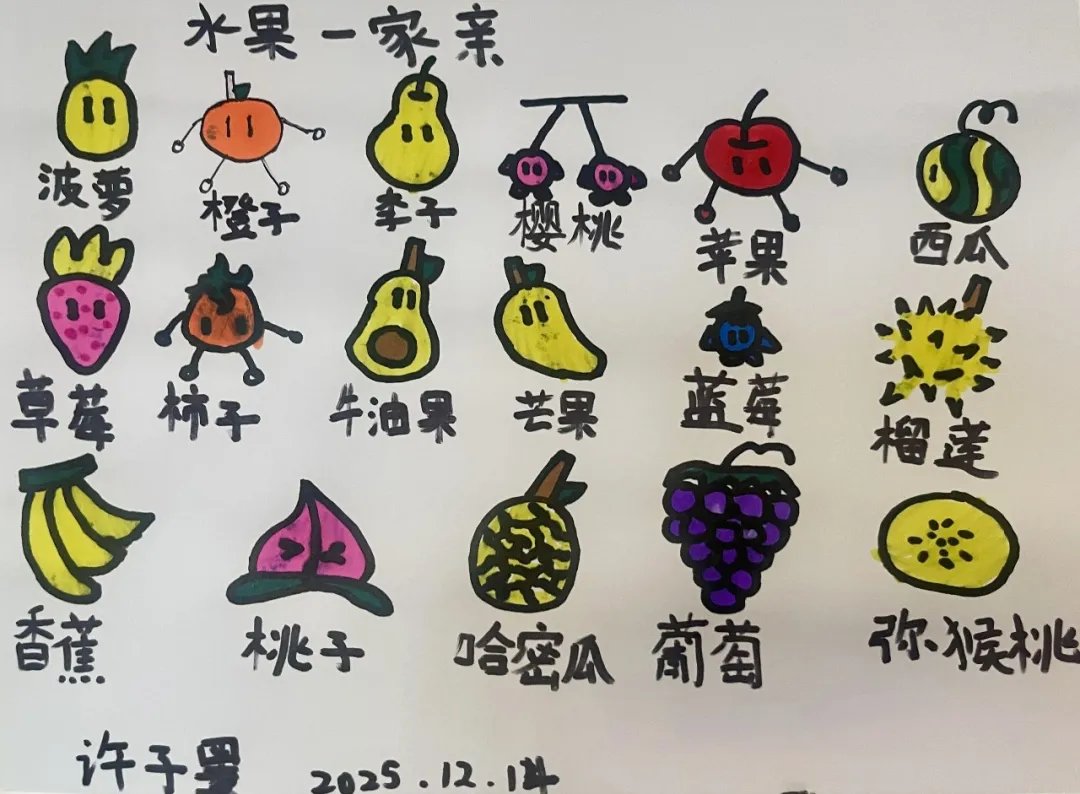 水果一家亲
波萝 橙子 李子 樱桃 苹果 西瓜
草莓 柿子 牛油果 芒果 蓝莓 榴莲
香蕉 桃子 哈密瓜 葡萄 弥猴桃
许子墨 2025.12.14